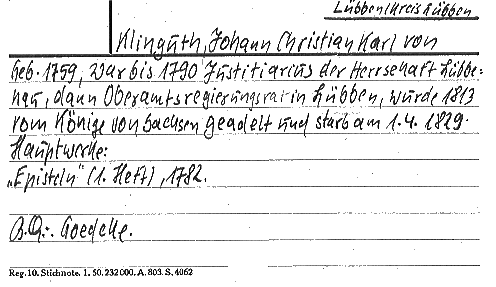 Lübben(Kreis Lübben
Klinguth, Johann Christian Karl von
Geb. 1759, war bis 1790 Justitiarius der Herrschaft Lübbe-
nau, dann Oberamtsregierungsrat in Lübben, wurde 1813
vom Könige von Sachsen geadelt und starb am 1.4. 1829.
Hauptwerke:
„Episteln" (1. Heft), 1782.
B.Q.: Goedeke.
Reg. 10. Stichnote. 1. 50. 232 000. A. 803. S. 4062